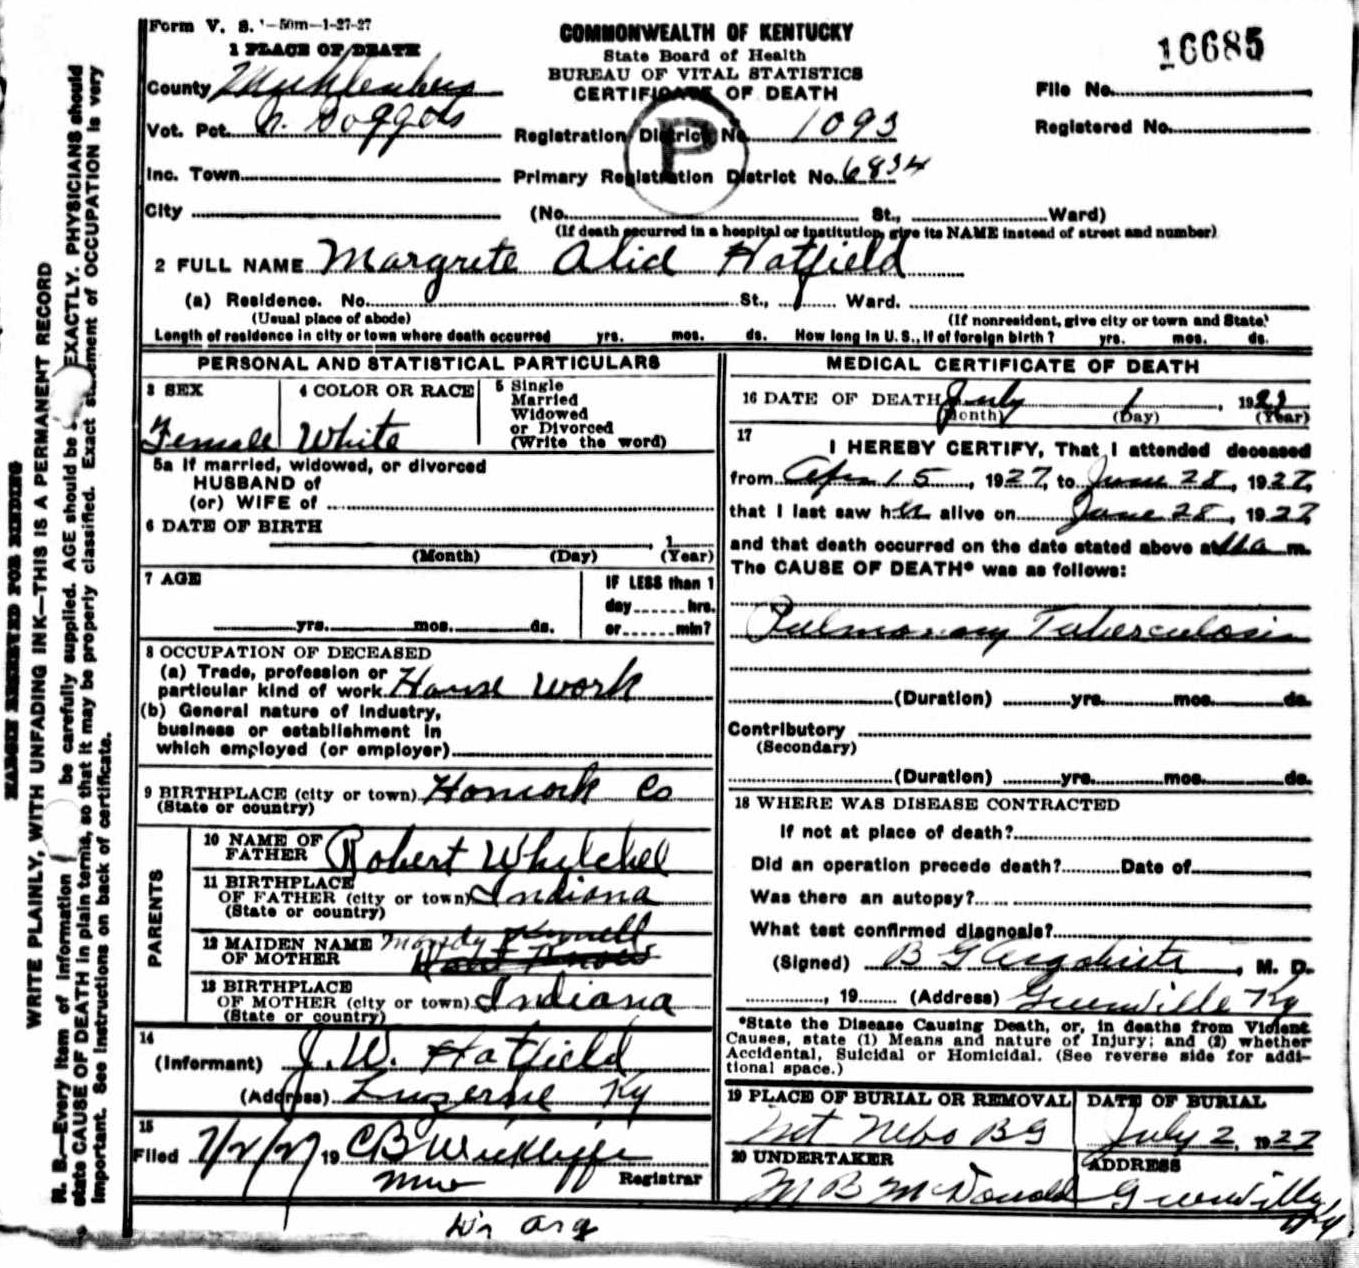 Form V. S. 1-50m-1-27-27
COMMONWEALTH OF KENTUCKY
State Board of Health
BUREAU OF VITAL STATISTICS
CERTIFICATE OF DEATH
16685
1 PLACE OF DEATH
County Muhlenberg
File No.
Vot. Pct. N. Boggess
Registration District No. 1093
Registered No.
P
Inc. Town
Primary Registration District No. 6834
City (No. St., Ward)
(If death occurred in a hospital or institution, give its NAME instead of street and number)
2 FULL NAME Margrete Alice Hatfield
(a) Residence. No. St., Ward.
(Usual place of abode) (If nonresident, give city or town and State)
Length of residence in city or town where death occurred yrs. mos. ds. How long in U. S., if of foreign birth? yrs. mos. ds.
PERSONAL AND STATISTICAL PARTICULARS
3 SEX
Female
4 COLOR OR RACE
White
5 Single
Married
Widowed
or Divorced
(Write the word)
5a If married, widowed, or divorced
HUSBAND of
(or) WIFE of
6 DATE OF BIRTH
, 1
(Month) (Day) (Year)
7 AGE
yrs. mos. ds.
IF LESS than 1
day hrs.
or min?
8 OCCUPATION OF DECEASED
(a) Trade, profession or
particular kind of work House work
(b) General nature of industry,
business or establishment in
which employed (or employer)
9 BIRTHPLACE (city or town) Hancock Co
(State or country)
PARENTS
10 NAME OF
FATHER Robert Whitchel
11 BIRTHPLACE
OF FATHER (city or town) Indiana
(State or country)
12 MAIDEN NAME
OF MOTHER Mandy
13 BIRTHPLACE
OF MOTHER (city or town) Indiana
(State or country)
14
(Informant) J. W. Hatfield
(Address) Luzerne Ky
15
Filed 7/2/27 19 CB Wickliffe
Registrar
MEDICAL CERTIFICATE OF DEATH
16 DATE OF DEATH July 1, 1927
(Month) (Day) (Year)
17
I HEREBY CERTIFY, That I attended deceased
from Apr 15, 1927, to June 28, 1927,
that I last saw her alive on June 28, 1927
and that death occurred on the date stated above at 11a m.
The CAUSE OF DEATH* was as follows:
Pulmonary Tuberculosis
(Duration) yrs. mos. ds.
Contributory
(Secondary)
(Duration) yrs. mos. ds.
18 WHERE WAS DISEASE CONTRACTED
If not at place of death?
Did an operation precede death? Date of
Was there an autopsy?
What test confirmed diagnosis?
(Signed) B G , M. D.
, 19 (Address) Greenville Ky
*State the Disease Causing Death, or, in deaths from Violent
Causes, state (1) Means and nature of Injury; and (2) whether
Accidental, Suicidal or Homicidal. (See reverse side for addi-
tional space.)
19 PLACE OF BURIAL OR REMOVAL
Mt Nebo BG
DATE OF BURIAL
July 2, 1927
20 UNDERTAKER
M B McDonald
ADDRESS
Greenville
Ky
MARGIN RESERVED FOR BINDING
WRITE PLAINLY, WITH UNFADING INK—THIS IS A PERMANENT RECORD
N. B.—Every item of information be carefully supplied. AGE should be EXACTLY. PHYSICIANS should
state CAUSE OF DEATH in plain terms, so that it may be properly classified. Exact statement of OCCUPATION is very
important. See instructions on back of certificate.